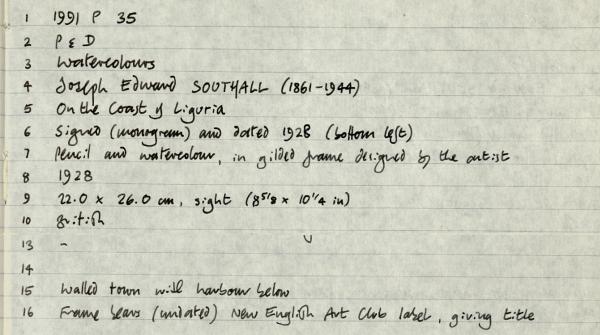 1 1991 P 35
2 P & D
3 Watercolours
4 Joseph Edward SOUTHALL (1861-1944)
5 On the Coast of Liguria
6 Signed (monogram) and dated 1928 (bottom left)
7 Pencil and watercolour, in gilded frame designed by the artist
8 1928
9 22.0 x 26.0 cm, sight (8 5/8 x 10 1/4 in)
10 British
13 -
14
15 Walled town with harbour below
16 Frame bears (undated) New English Art Club label, giving title